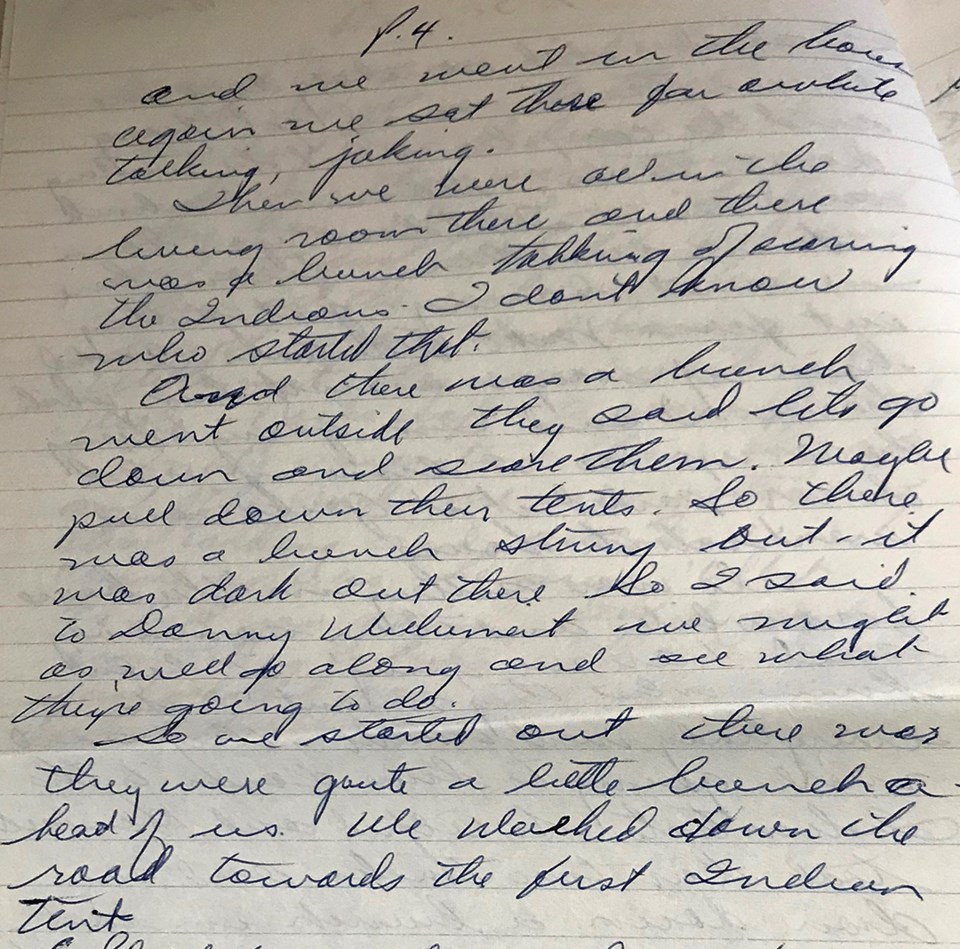 P.4.
and we went in the house
again we sat there for awhile
talking, joking.
Then we were all in the
living room there and there
was a bunch talking of scaring
the Indians. I don't know
who started that.
And there was a bunch
went outside they said lets go
down and scare them. Maybe
pull down their tents. So there
was a bunch strung out - it
was dark out there So I said
to Danny we might
as well go along and see what
they're going to do.
So we started out there was
they were quite a little bunch a-
head of us. We walked down the
road towards the first Indian
tent